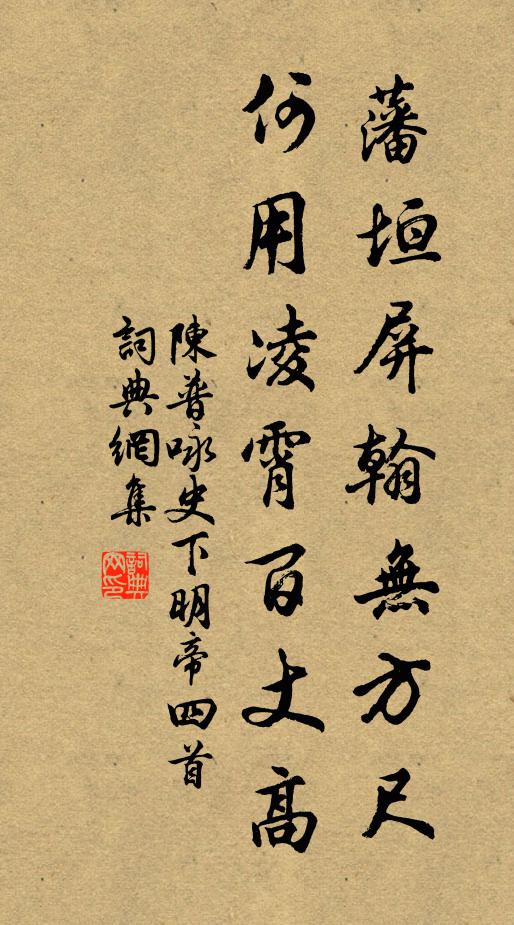 藩垣屏翰無方尺
何用凌霄百丈高
陳普咏史下明帝四首
詞典網集
詞典網印